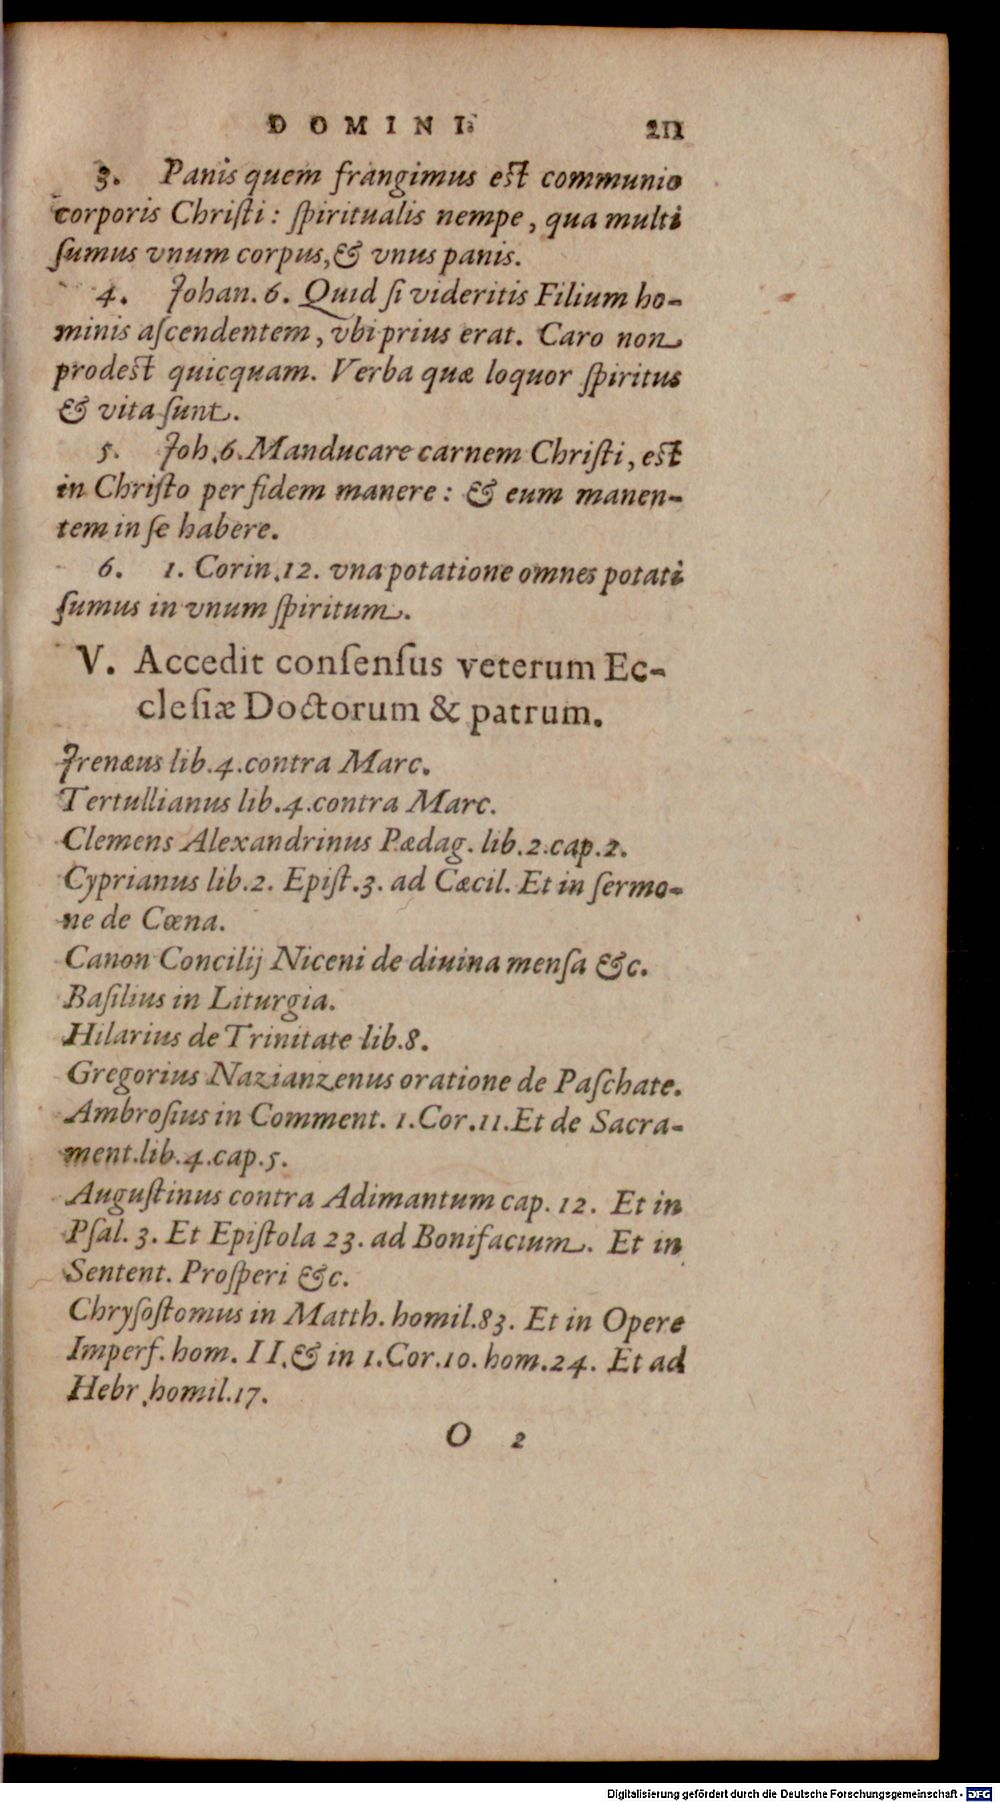 DOMINI. 211
3. Panis quem frangimus est communio
corporis Chriſti: ſpiritualis nempe, qua multi
ſumus vnum corpus, & vnus panis.
4. Johan. 6. Quid ſi videritis Filium ho-
minis aſcendentem, vbi prius erat. Caro non
prodest quicquam. Verba quæ loquor ſpiritus
& vita ſunt.
5. Joh. 6. Manducare carnem Chriſti, est
in Chriſto per fidem manere: & eum manen-
tem in ſe habere.
6. 1. Corin. 12. vna potatione omnes potati
ſumus in vnum ſpiritum.
V. Accedit conſenſus veterum Ec-
cleſiæ Doctorum & patrum.
Jrenæus lib. 4. contra Marc.
Tertullianus lib. 4. contra Marc.
Clemens Alexandrinus Pædag. lib. 2. cap. 2.
Cyprianus lib. 2. Epiſt. 3. ad Cæcil. Et in ſermo-
ne de Cœna.
Canon Concilij Niceni de diuina menſa &c.
Baſilius in Liturgia.
Hilarius de Trinitate lib. 8.
Gregorius Nazianzenus oratione de Paſchate.
Ambroſius in Comment. 1. Cor. 11. Et de Sacra-
ment. lib. 4. cap. 5.
Auguſtinus contra Adimantum cap. 12. Et in
Pſal. 3. Et Epiſtola 23. ad Bonifacium. Et in
Sentent. Proſperi &c.
Chryſoſtomus in Matth. homil. 83. Et in Opere
Imperf. hom. 11. & in 1. Cor. 10. hom. 24. Et ad
Hebr. homil. 17.
O 2
Digitalisierung gefördert durch die Deutsche Forschungsgemeinschaft - DFG